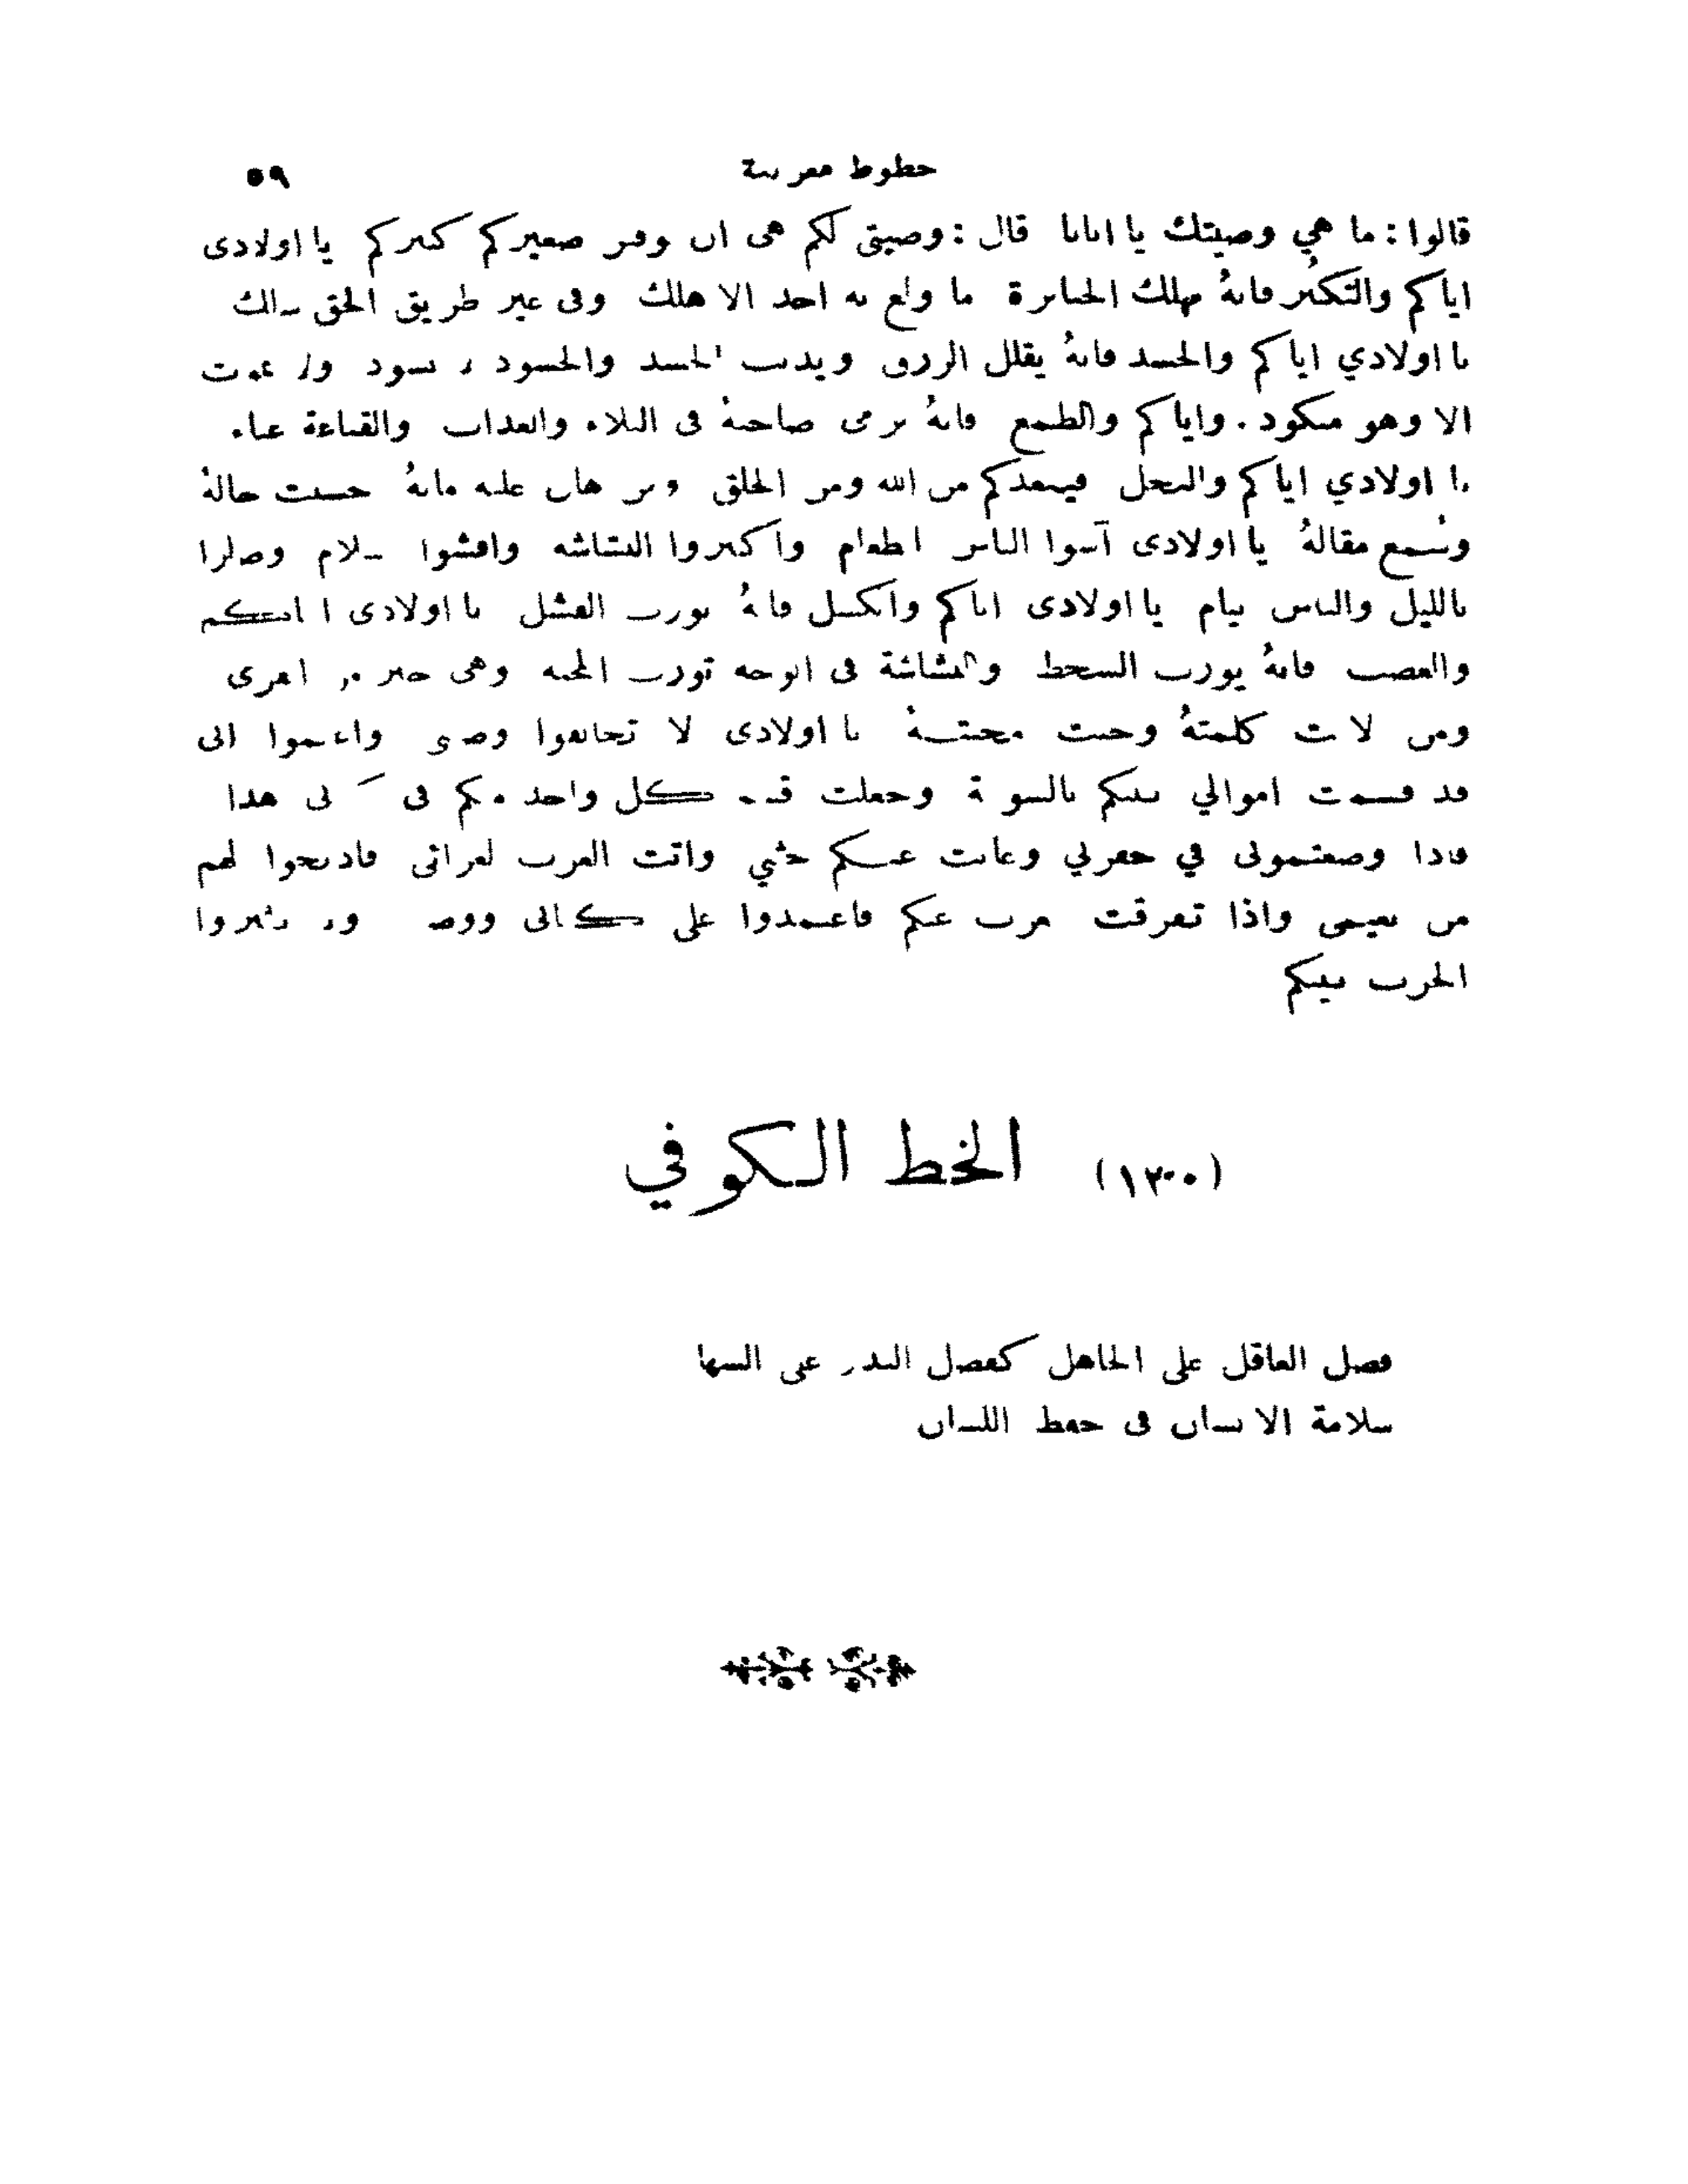 خطوط مغربية ٥٩
قالوا : ما هي وصيتك يا ابانا قال : وصيتي لكم هي ان يوقر صغيركم كبيركم يا اولادي
اياكم والتكبُّر فانهُ مهلك الجبابرة ما ولع به احد الا هلك وفي غير طريق الحق سالك
يا اولادي اياكم والحسد فانهُ يقلل الرزق ويذيب الجسد والحسود لا يسود ولا يموت
الا وهو منكود . واياكم والطمع فانهُ يرمي صاحبهُ في البلاء والعذاب والقناعة غناء
يا اولادي اياكم والبخل فيبعدكم من الله ومن الخلق ومن هان عليه مالهُ حسنت حالهُ
وسُمع مقالهُ يا اولادي آسوا الناس الطعام واكثروا البشاشه وافشوا السلام وصلوا
بالليل والناس نيام يا اولادي اياكم والكسل فانهُ يورث الفشل يا اولادي اياكم
والغضب فانهُ يورث السخط والبشاشة في الوجه تورث المحبه وهي خير من القرى
ومن لانت كلمتهُ وجبت محبتــهُ يا اولادي لا تخالفوا وصيتي واعلموا اني
قد قسمت اموالي بينكم بالسوية وجعلت قسم كل واحد منكم في كتابي هذا
فاذا وضعتموني في حفرتي وغابت عنكم جثتي واتت العرب لعزائي فاذبحوا لهم
من نعيمي واذا تفرقت العرب عنكم فاعتمدوا على كتابي ولا تثيروا
الحرب بينكم
(١٣٠٠) الخط الكوفي
فضل العاقل على الجاهل كفضل البدر على السها
سلامة الانسان في حفظ اللسان